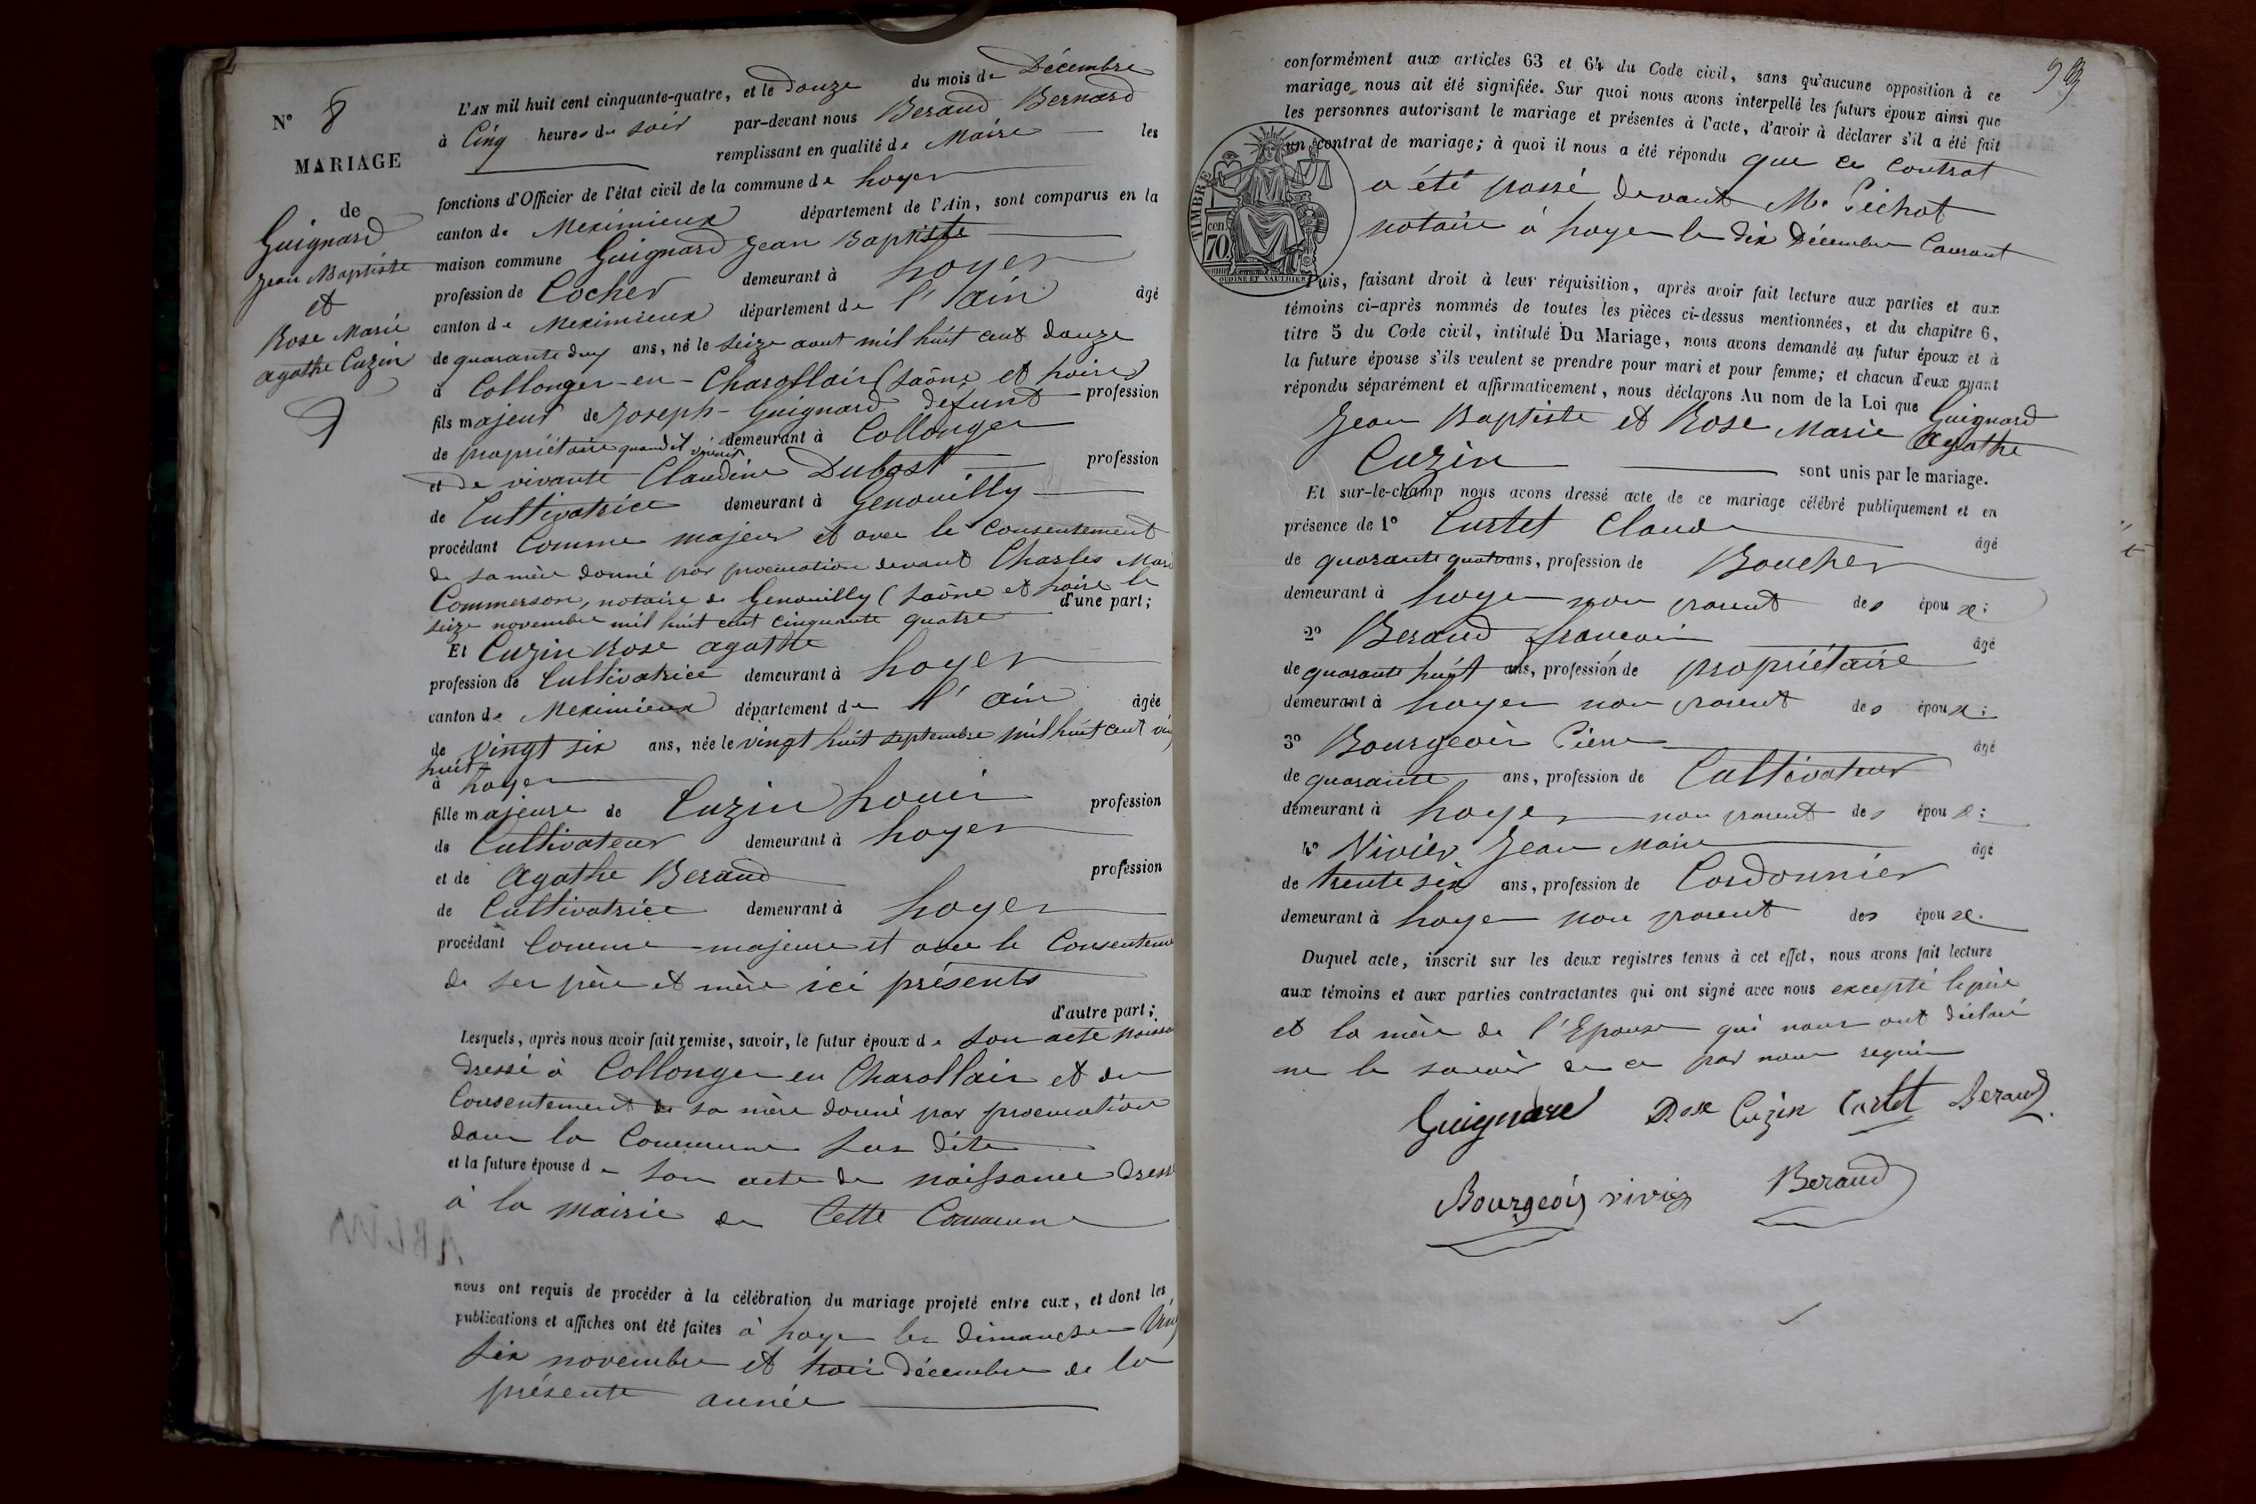 N° 8
MARIAGE
de
Guignard
Jean Baptiste
et
Rose Marie
agathe Cuzin
L'AN mil huit cent cinquante-quatre, et le douze du mois de Décembre
à Cinq heures du soir par-devant nous Beraud Bernard
remplissant en qualité de Maire les
fonctions d'Officier de l'état civil de la commune de Loyes
canton de Meximieux département de l'Ain, sont comparus en la
maison commune Guignard Jean Baptiste
profession de Cocher demeurant à Loyes
canton de Meximieux département de l'ain âgé
de quarante deux ans, né le seize aout mil huit cent douze
à Collonges-en-Charollais (Saône et Loire)
fils majeur de Joseph-Guignard défunt profession
de propriétaire quand il vivait demeurant à Collonges
et de vivante Claudine Dubost profession
de Cultivatrice demeurant à Genouilly
procédant Comme majeur et avec le Consentement
de sa mère donné par procuration devant Charles Marie
Commerson, notaire de Genouilly (Saône et Loire le
seize novembre mil huit cent cinquante quatre d'une part;
Et Cuzin Rose agathe
profession de Cultivatrice demeurant à Loyes
canton de Meximieux département de l'ain âgée
de vingt six ans, née le vingt huit septembre mil huit cent
huit
à Loyes
fille majeure de Cuzin Louis profession
de Cultivateur demeurant à Loyes
et de Agathe Beraud profession
de Cultivatrice demeurant à Loyes
procédant Comme majeure et avec le
de ses père et mère ici présents
d'autre part;
Lesquels, après nous avoir fait remise, savoir, le futur époux de son acte
dressé à Collonges en Charollais et du
Consentement de sa mère donné par procuration
dans la Commune sus dite
et la future épouse de son acte de naissance
à la Mairie de Cette Commune
nous ont requis de procéder à la célébration du mariage projeté entre eux, et dont les
publications et affiches ont été faites à Loyes les dimanches
six novembre et trois décembre de la
présente année
conformément aux articles 63 et 64 du Code civil, sans qu'aucune opposition à ce
mariage nous ait été signifiée. Sur quoi nous avons interpellé les futurs époux ainsi que
les personnes autorisant le mariage et présentes à l'acte, d'avoir à déclarer s'il a été fait
un contrat de mariage; à quoi il nous a été répondu que ce Contrat
a été passé devant Me Pichat
notaire à Loyes le dix Décembre Courant
TIMBRE
cen.
70
OUDINE ET VAUTHIER
Puis, faisant droit à leur réquisition, après avoir fait lecture aux parties et aux
témoins ci-après nommés de toutes les pièces ci-dessus mentionnées, et du chapitre 6,
titre 5 du Code civil, intitulé Du Mariage, nous avons demandé au futur époux et à
la future épouse s'ils veulent se prendre pour mari et pour femme; et chacun d'eux ayant
répondu séparément et affirmativement, nous déclarons Au nom de la Loi que Guignard
Jean Baptiste et Rose Marie Agathe
Cuzin sont unis par le mariage.
Et sur-le-champ nous avons dressé acte de ce mariage célébré publiquement et en
présence de 1° Curtet Claude âgé
de quarante quatre ans, profession de Boucher
demeurant à Loyes non parent des époux;
2° Beraud francois âgé
de quarante huit ans, profession de propriétaire
demeurant à Loyes non parent des époux;
3° Bourgeois Pierre âgé
de quarante ans, profession de Cultivateur
demeurant à Loyes non parent des époux;
4° Vivier Jean Marie âgé
de trente six ans, profession de Cordonnier
demeurant à Loyes non parent des époux.
Duquel acte, inscrit sur les deux registres tenus à cet effet, nous avons fait lecture
aux témoins et aux parties contractantes qui ont signé avec nous excepté le père
et la mère de l'Epouse qui nous ont déclaré
ne le savoir de ce par nous requis
Guignard Rose Cuzin Curtet Beraud
Bourgeois vivier Beraud